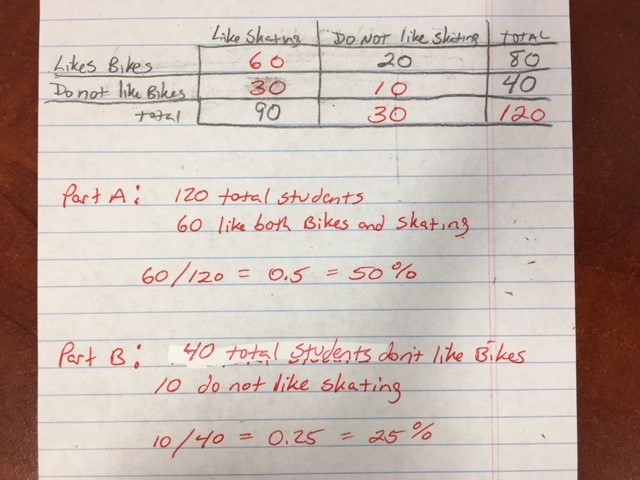 Like Skating DO NOT like Skating TOTAL
Likes Bikes 60 20 80
Do not like Bikes 30 10 40
total 90 30 120
Part A: 120 total students
60 like both Bikes and skating
60/120 = 0.5 = 50%
Part B: 40 total students don't like Bikes
10 do not like skating
10/40 = 0.25 = 25%